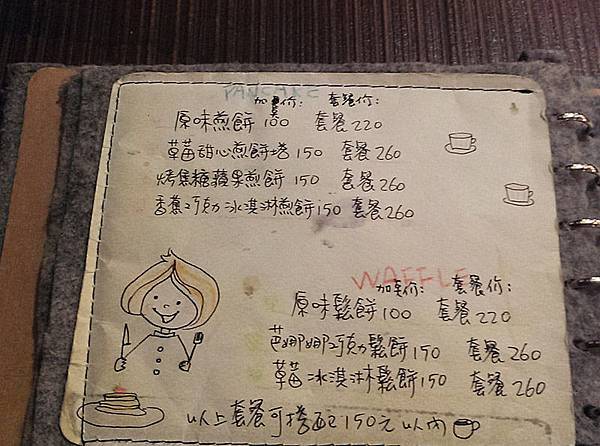 PANCAKE
加點价: 套餐价:
原味煎餅 100 套餐 220
草莓甜心煎餅塔 150 套餐 260
烤焦糖蘋果煎餅 150 套餐 260
香蕉巧克力冰淇淋煎餅 150 套餐 260
WAFFLE
套餐价:
原味鬆餅 100 套餐 220
芭娜娜巧克力鬆餅 150 套餐 260
草莓冰淇淋鬆餅 150 套餐 260
以上套餐可搭配150元以內